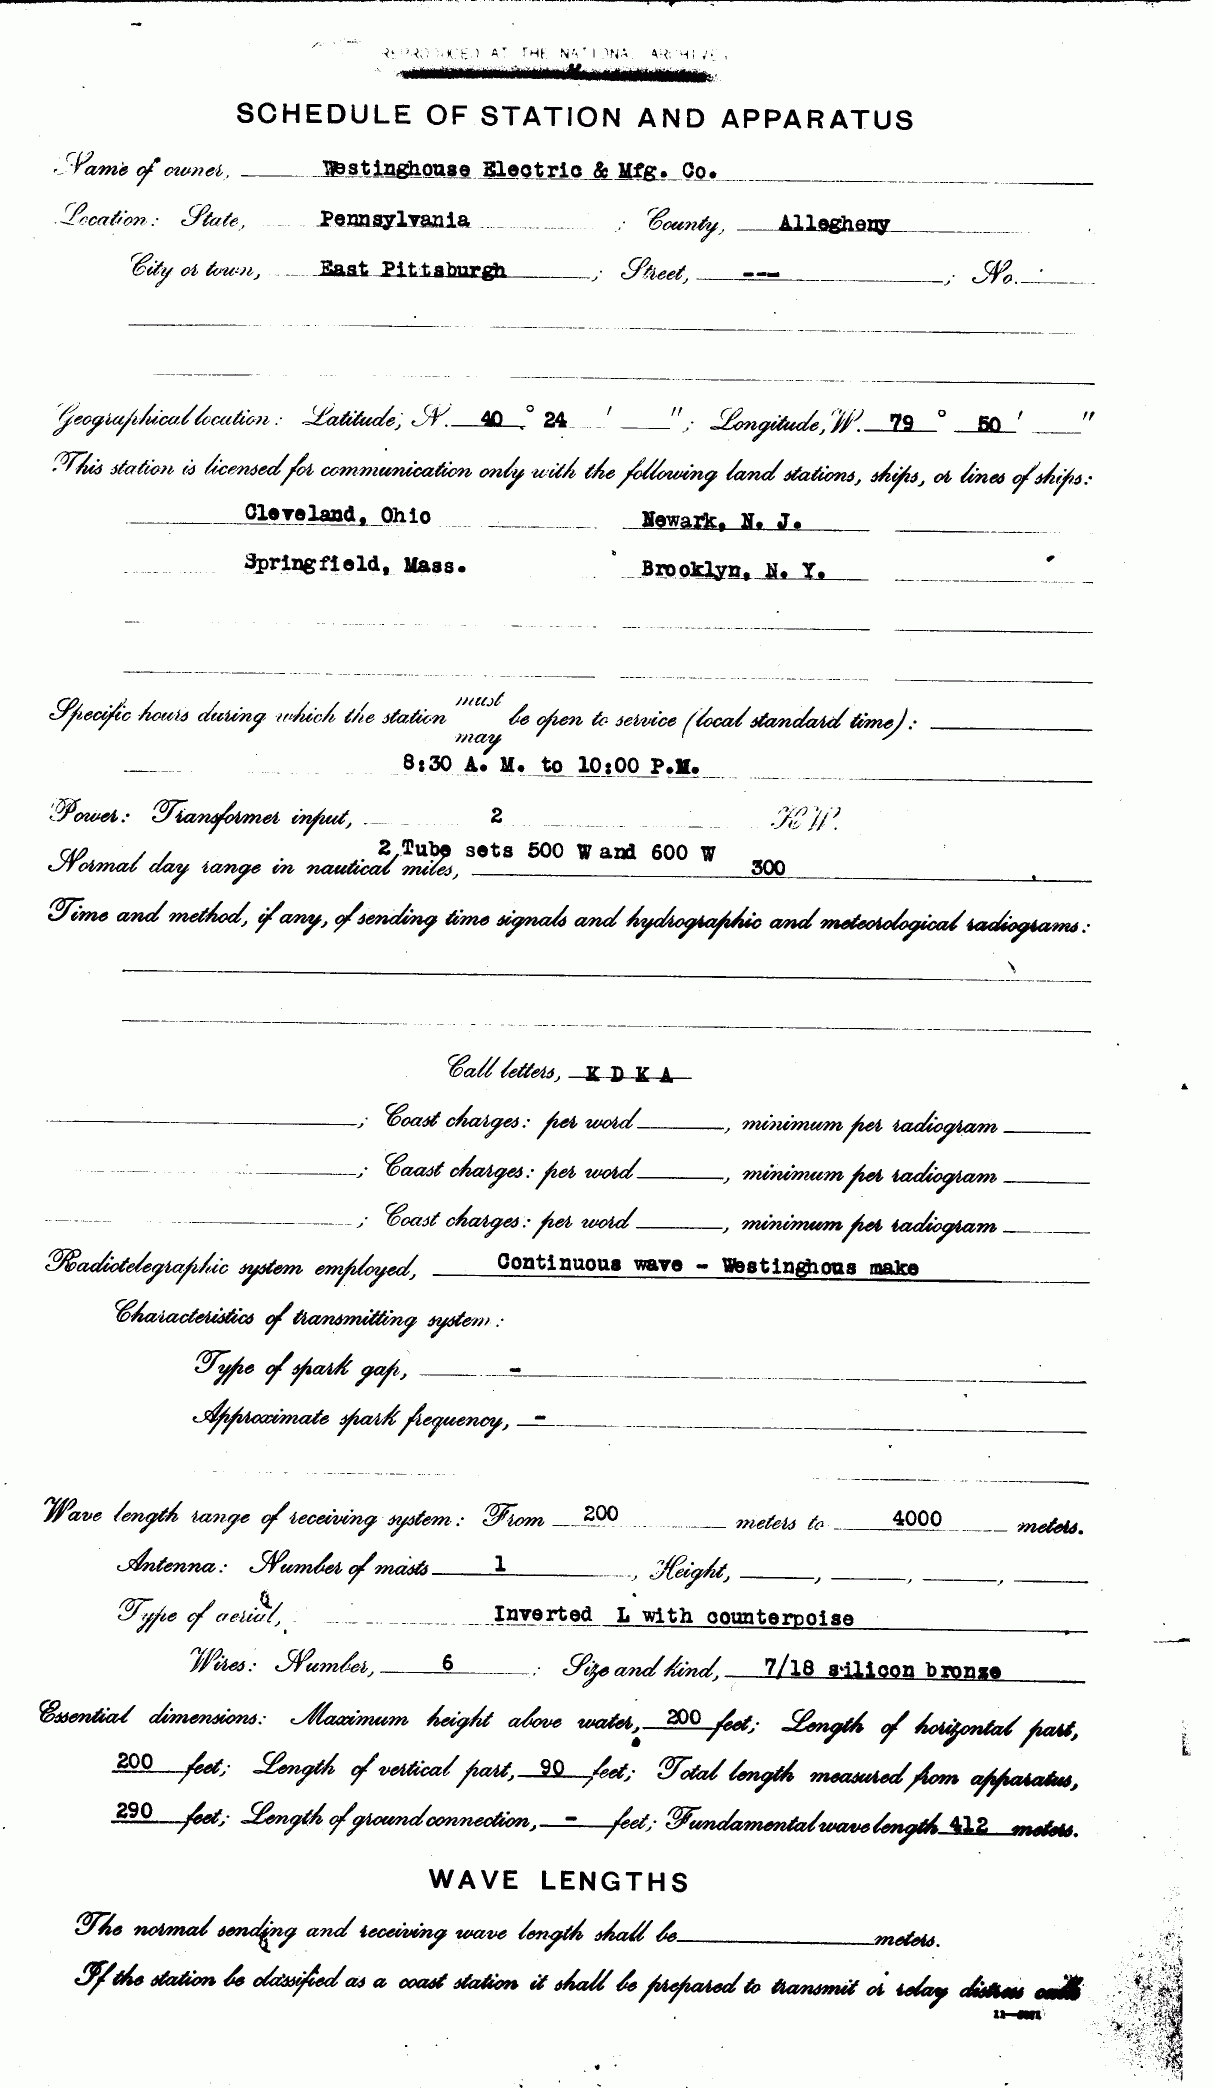 REPRODUCED AT THE NATIONAL ARCHIVES
SCHEDULE OF STATION AND APPARATUS
Name of owner, Westinghouse Electric & Mfg. Co.
Location: State, Pennsylvania ; County, Allegheny
City or town, East Pittsburgh ; Street, --- ; No.
Geographical location: Latitude, N. 40 ° 24 ' "; Longitude, W. 79 ° 50 ' "
This station is licensed for communication only with the following land stations, ships, or lines of ships:
Cleveland, Ohio Newark, N. J.
Springfield, Mass. Brooklyn, N. Y.
must
Specific hours during which the station be open to service (local standard time):
may
8:30 A. M. to 10:00 P.M.
Power: Transformer input, 2 K.W.
2 Tube sets 500 W and 600 W
Normal day range in nautical miles, 300
Time and method, if any, of sending time signals and hydrographic and meteorological radiograms:
Call letters, K D K A
; Coast charges: per word , minimum per radiogram
; Caast charges: per word , minimum per radiogram
; Coast charges: per word , minimum per radiogram
Radiotelegraphic system employed, Continuous wave - Westinghous make
Characteristics of transmitting system:
Type of spark gap, -
Approximate spark frequency, -
Wave length range of receiving system: From 200 meters to 4000 meters.
Antenna: Number of masts 1 , Height, , , ,
Type of aerial, Inverted L with counterpoise
Wires: Number, 6 ; Size and kind, 7/18 silicon bronze
Essential dimensions: Maximum height above water, 200 feet; Length of horizontal part,
200 feet; Length of vertical part, 90 feet; Total length measured from apparatus,
290 feet; Length of ground connection, - feet; Fundamental wave length 412 meters.
WAVE LENGTHS
The normal sending and receiving wave length shall be meters.
If the station be classified as a coast station it shall be prepared to transmit or relay distress calls